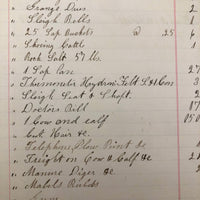 " Grange Dues 2
" Sleigh Bells
" 25 Sap Buckets @ .25 6
" Shoeing Cattle
" Rock Salt 57 lbs.
" 1 Sap Pan 2
" Thermometer Hydrom Felt
" Sleigh Seat & Shaft. 2
" Doctors Bill 17
" 1 Cow and calf 50
" Cut Hair &c.
" Telephone, Plow Point &c
" Freight on Cow & Calf &c
" Manure Diger &c
" Mabels Rubers